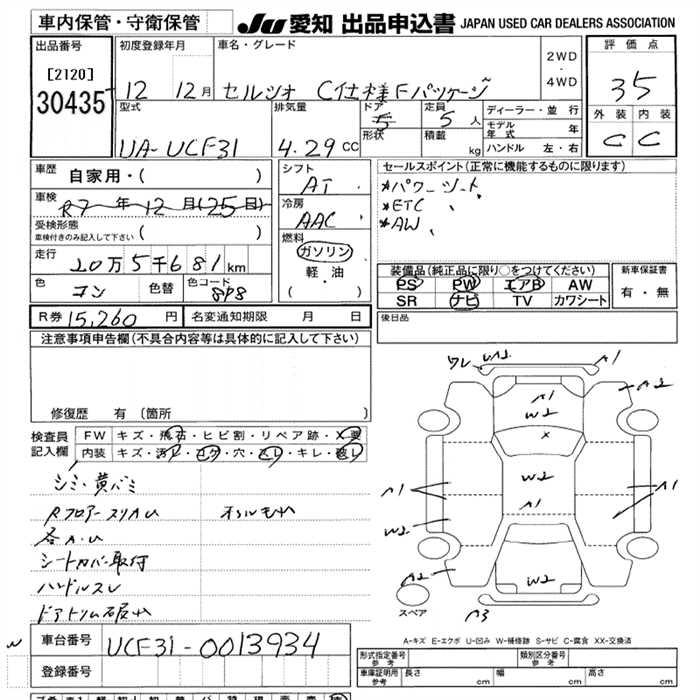 車内保管・守衛保管
JU 愛知 出品申込書 JAPAN USED CAR DEALERS ASSOCIATION
出品番号
[2120]
30435
初度登録年月
12 12月
車名・グレード
セルシオ C仕様Fパッケージ
2WD
・
4WD
評価点
35
外装 内装
C C
型式
UA-UCF31
排気量
4.29 CC
ドア
5
形状
定員
5人
積載
kg
ディーラー・並行
モデル年式 年
ハンドル 左・右
車歴
自家用・( )
車検
R7年12月(25日)
受検形態
車検付きのみ記入して下さい ( )
走行
20万5千681km
色
コン
色替
色コード
8P8
シフト
AT
冷房
AAC
燃料
ガソリン
・
軽・油
( )
セールスポイント(正常に機能するものに限ります)
*パワーシート
*ETC
*AW
装備品(純正品に限り○をつけてください)
PS PW エアB AW
SR ナビ TV カワシート
新車保証書
有・無
後日品
R券 15,260 円
名変通知期限 月 日
注意事項申告欄(不具合内容等は具体的に記入して下さい)
修復歴 有 (箇所 )
検査員
記入欄
FW キズ・飛石・ヒビ割・リペア跡・X要
内装 キズ・汚レ・コゲ・穴・スレ・キレ・破レ
シミ・黄バミ
Rフロアースリ
シートカバー取付
ハンドルスレ
ドアトリム破
ワレ W2 A1
A2
A1
W2
X
W2
A1
A1
A1
W2
W2
A2
A3
スペア
A-キズ E-エクボ U-凹み W-補修跡 S-サビ C-腐食 XX-交換済
車台番号
UCF31-0013934
登録番号
形式指定番号
参考
類別区分番号
参考
車庫証明用
参考
長さ cm
幅 cm
高さ cm